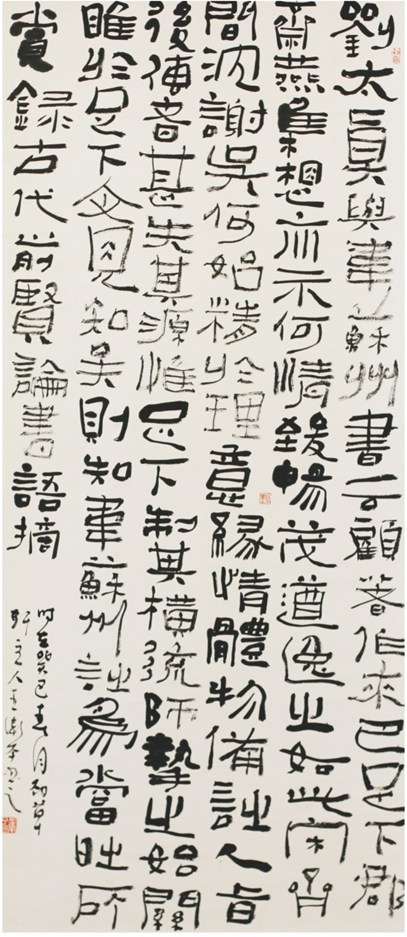 劉太真與韋蘇州書云顧著作來已足下郡
齋燕集想示何情致暢茂遒逸之如此宋齊
間沈謝吳何始精於理意緣情體物備詩人旨
後傳者甚失其源惟足下制其橫流師摯之始關
雎於足下文見知吴則知韋蘇州詩為當時所
賞錄古代前賢論書語摘
時在癸巳春月初草
軒主人王